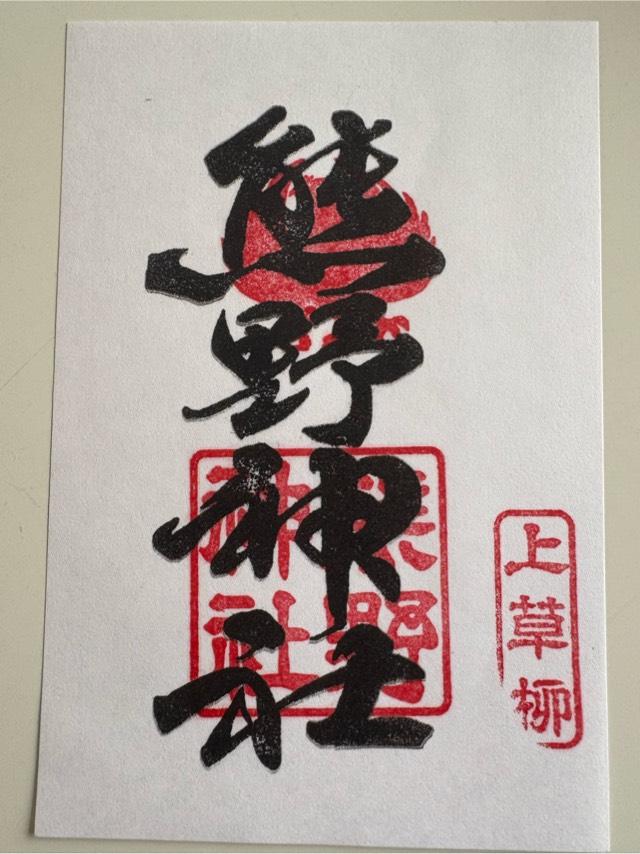 上草柳
熊野神社
熊野神社